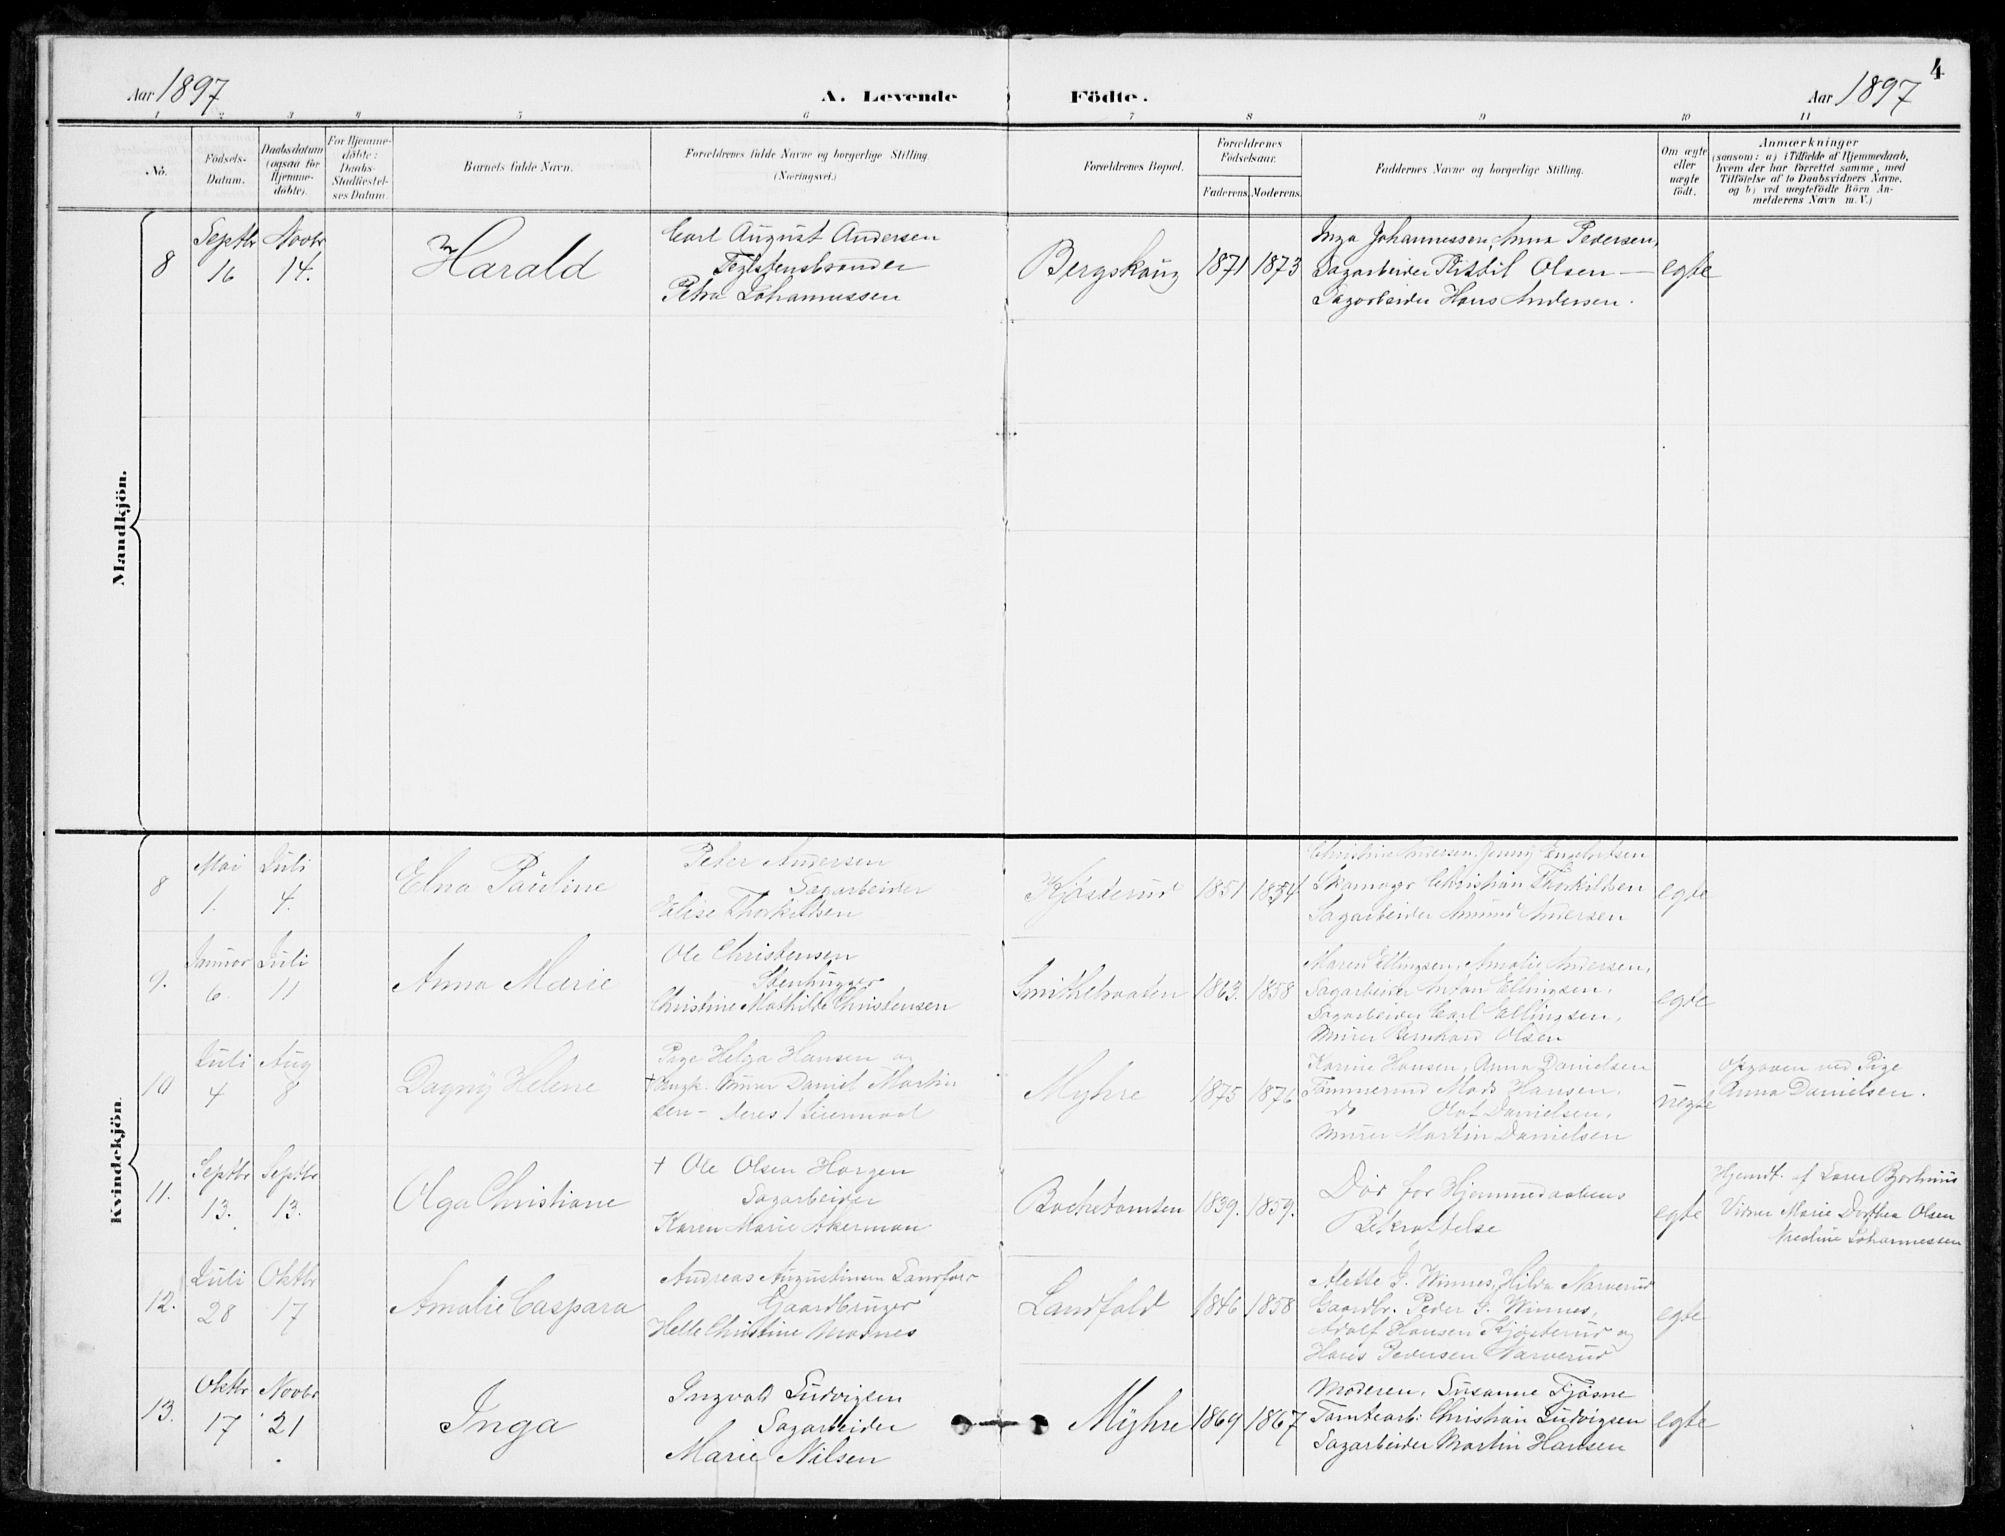 4
Aar 1897
A. Levende Födte.
Aar 1897
1 2 3 4 5 6 7 8 9 10 11
No.
Födsels-
Datum.
Daabsdatum
(ogsaa for
Hjemme-
döbte).
For Hjemme-
döbte:
Daabs-
Stadfæstel-
ses Datum.
Barnets fulde Navn.
Forældrenes fulde Navne og borgerlige Stilling
(Næringsvei.)
Forældrenes Bopæl.
Forældrenes
Födselsaar.
Faderens. Moderens.
Faddernes Navne og borgerlige Stilling.
Om ægte
eller
uægte
födt.
Anmærkninger
(saasom: a) i Tilfælde af Hjemmedaab,
hvem der har forrettet samme, med
Tilföielse af to Daabsvidners Navne,
og b) ved uegtefödte Börn An-
melderens Navn m. V.)
Mandkjön.
8
Septbr
16
Novbr
14.
Harald
Carl August Andersen
Teglstensbrænder
Petra Johannessen
Bergskaug
1871
1873
Inga Johannessen, Anna Pedersen,
Sagarbeider Kittil Olsen —
Sagarbeider Hans Andersen.
egte
Kvindekjön.
8
Mai
1.
Juli
4.
Elna Pauline
Peter Andersen
Sagarbeider
Elise Thorkildsen
Kjøsterud
1851
1854
Christine Andersen, Jenny Engelbretsen
Skomager Christian Thorkildsen
Sagarbeider Amund Andersen
egte
9.
Januar
6.
Juli
11
Anna Marie
Ole Christensen
Stenhugger
Christine Mathilde Christensen
Smithebraaten
1863.
1858
Maren Ellingsen, Amalie Andersen,
Sagarbeider Anton Ellingsen,
Sagarbeider Carl Ellingsen,
Murer Bernhard Olsen
egte
10
Juli
4
Aug
8
Dagny Helene
Pige Helga Hansen og
† Ungk. Murer Daniel Martin
sen – deres 1 Leiermaal
Myhre
1875
1876
Karine Hansen, Anna Danielsen
Tømmermd Mads Hansen,
do Olaf Danielsen,
Murer Martin Danielsen
uegte
Opgaven ved Pige
Anna Danielsen.
11.
Septbr
13.
Septbr
13.
Olga Christiane
† Ole Olsen Horgen
Sagarbeider
Karen Marie Akerman
Bachetomten
1839.
1859.
Død før Hjemmedaabens
Bekræftelse
egte
Hjemdt. af Lærer Bjertnæs
Vidner Marie Dorthea Olsen
Nicoline Johannessen
12.
Juli
28
Oktbr
17
Amalie Caspara
Andreas Augustinsen Landfald
Gaardbruger
Helle Christine Modnes
Landfald
1846
1858
Alette G. Winnes, Hilda Narverud
Gaardbr. Peder G. Winnes,
Adolf Hansen Kjøsterud og
Hans Pedersen Narverud
egte
13.
Oktbr
17
Novbr
21
Inga
Ingvald Ludvigsen
Sagarbeider
Marie Nilsen
Myhre
1869
1867
Moderen, Susanne Fjøsne
Tomtearb: Christian Ludvigsen
Sagarbeider Martin Hansen
egte